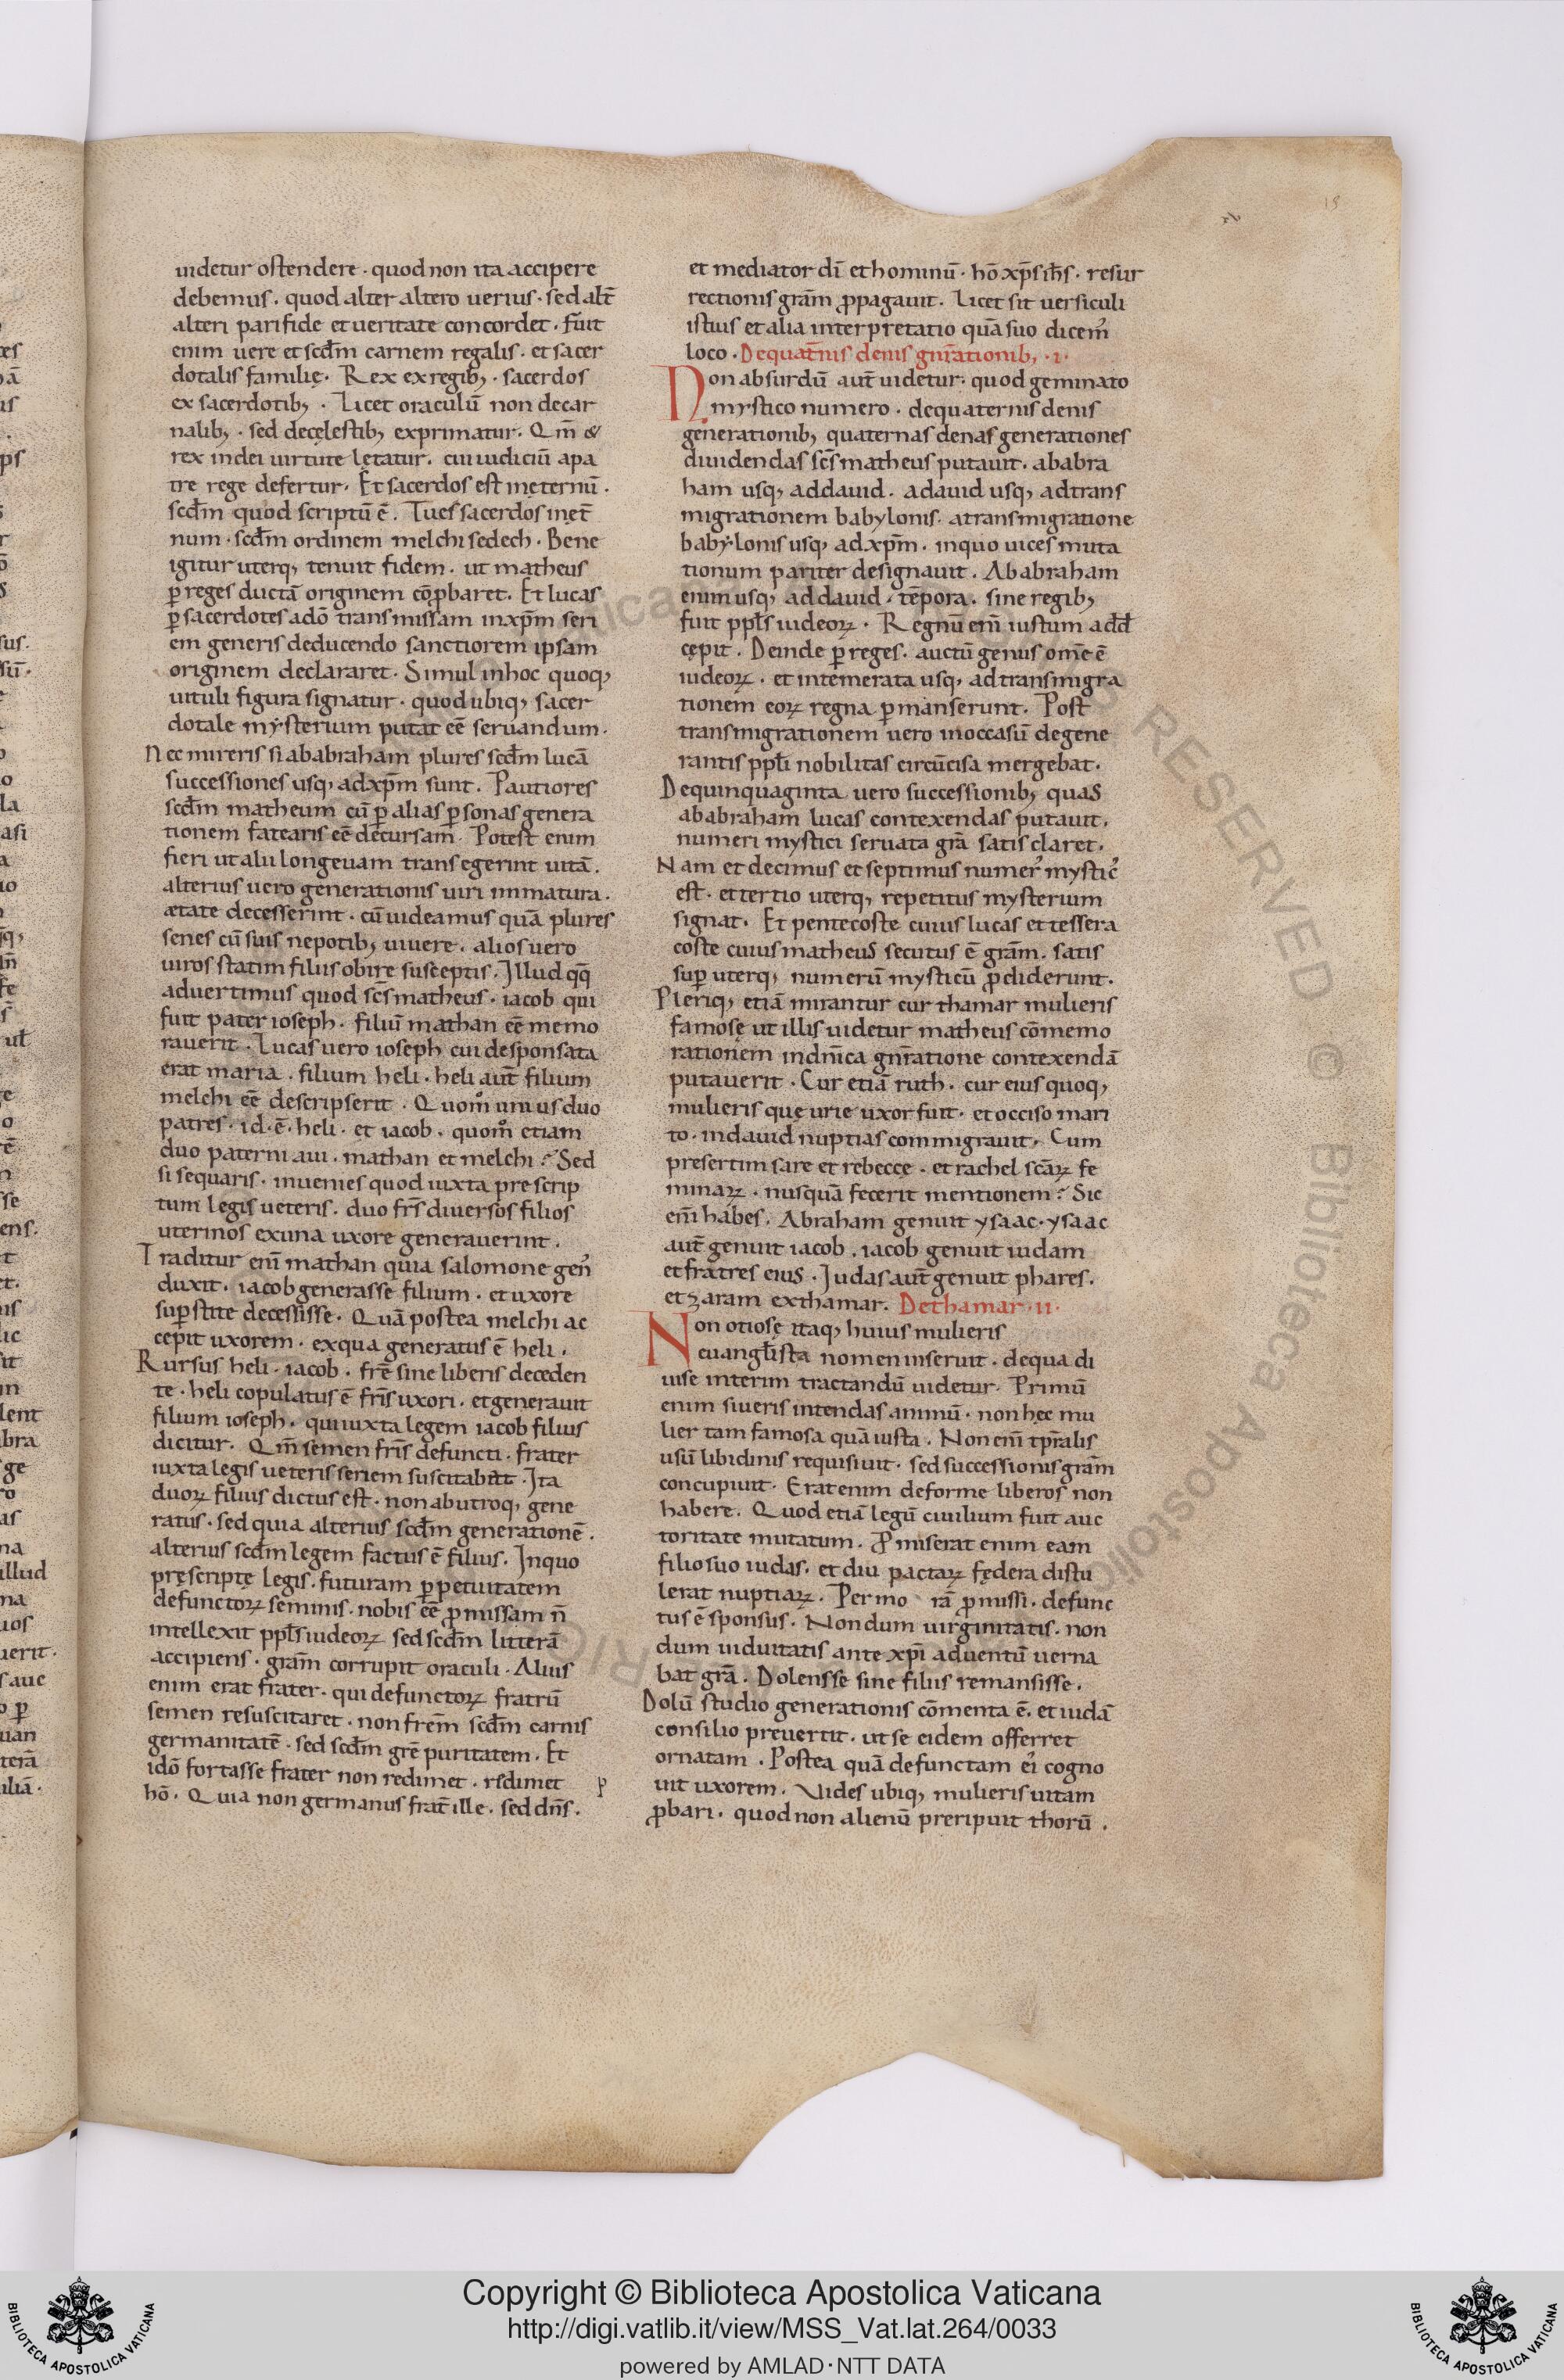 uidetur ostendere · quod non ita accipere
debemus · quod alter altero uerius · sed alt̄
alteri pari fide et ueritate concordet · fuit
enim uere et scdm̄ carnem regalis · et sacer
dotalis familię · Rex ex regib; · sacerdos
ex sacerdotib; · Licet oraculū non de car
nalib; · sed de cęlestib; exprimatur · Qm̄ &
rex in dei uirtute lętatur · cui iudiciū a pa
tre rege defertur · Et sacerdos est in ęternū ·
scdm̄ quod scriptū ē · Tu es sacerdos in ęt̄
num · scdm̄ ordinem melchisedech · Bene
igitur uterq; tenuit fidem · ut matheus
ꝑ reges ductā originem cōꝓbaret · Et lucas
ꝑ sacerdotes a dō transmissam in xp̄m seri
em generis deducendo sanctiorem ipsam
originem declararet · Simul in hoc quoq;
uituli figura signatur · quod ubiq; sacer
dotale mysterium putat eē seruandum ·
Nec mireris si ab abraham plures scdm̄ lucā
successiones usq; ad xp̄m sunt · Pautiores
scdm̄ matheum cū ꝑ alias ꝑsonas genera
tionem fatearis eē decursam · Potest enim
fieri ut alii longeuam transegerint uitā ·
alterius uero generationis uiri immatura ·
ætate decesserint · cū uideamus quā plures
senes cū suis nepotib; uiuere · alios uero
uiros statim filiis obire susceptis · Illud qq̄
aduertimus quod scs̄ matheus · iacob qui
fuit pater ioseph · filiū mathan eē memo
rauerit · Lucas uero ioseph cui desponsata
erat maria · filium heli · heli aut̄ filium
melchi eē descripserit · Quom̊ unius duo
patres · id · ē · heli · et iacob · quom̊ etiam
duo paterni aui · mathan et melchi? Sed
si sequaris · inuenies quod iuxta prescrip
tum legis ueteris · duo frs̄ diuersos filios
uterinos ex una uxore generauerint ·
Traditur eni᷎ mathan qui a salomone gen᷎
duxit · iacob generasse filium · et uxore
suꝑstite decessisse · Quā postea melchi ac
cepit uxorem · ex qua generatus ē heli ·
Rursus heli · iacob · frē sine liberis deceden
te · heli copulatus ē fris̄ uxori · et generauit
filium ioseph · qui iuxta legem iacob filius
dicitur · Qm̄ semen fris̄ defuncti · frater
iuxta legis ueteris seriem suscitabat · Ita
duoꝝ filius dictus est · non ab utroq; gene
ratus · sed quia alterius scdm̄ generationē ·
alterius scdm̄ legem factus ē filius · In quo
pręscriptę legis · futuram ꝑpetuitatem
defunctoꝝ seminis · nobis eē ꝓmissam n̄
intellexit ppl̄s iudeoꝝ sed scdm̄ litterā
accipiens · gram̄ corrupit oraculi · Alius
enim erat frater · qui defunctoꝝ fratrū
semen resuscitaret · non frēm scdm̄ carnis
germanitatē · sed scdm̄ grē puritatem · Et
idō fortasse frater non redimet · redimet
hō · Quia non germanus frat̄ ille · sed dn̄s ·
et mediator dī et hominū · hō xp̄s ih̄s · resur
rectionis gram̄ ꝓpagauit · Licet sit uersiculi
istius et alia interpretatio quā suo dicem᷎
loco · De quat̄nis denis gnr̄ationib; · i ·
Non absurdū aut̄ uidetur · quod geminato
mystico numero · de quaternis denis
generationib; quaternas denas generationes
diuidendas scs̄ matheus putauit · ab abra
ham usq; ad dauid · a dauid usq; ad trans
migrationem babylonis · a transmigratione
babylonis usq; ad xp̄m · in quo uices muta
tionum pariter designauit · Ab abraham
enim usq; ad dauid · tēpora · sine regib;
fuit ppl̄s iudeoꝝ · Regnū em̄ iustum a dd̄
cępit · Deinde ꝑ reges · auctū genus omē ē
iudeoꝝ · et intemerata usq; ad transmigra
tionem eoꝝ regna ꝑmanserunt · Post
transmigrationem uero in occasū degene
rantis ppl̄i nobilitas circūcisa mergebat ·
De quinquaginta uero successionib; quas
ab abraham lucas contexendas putauit ·
numeri mystici seruata grā satis claret ·
Nam et decimus et septimus numer᷎ mystic᷎
est · et tertio uterq; repetitus mysterium
signat · Et pentecoste cuius lucas et tessera
coste cuius matheus secutus ē gram̄ · satis
suꝑ uterq; numerū mysticū ꝓdiderunt ·
Pleriq; etiā mirantur cur thamar mulieris
famosę ut illis uidetur matheus cōmemo
rationem in dnīca gnr̄atione contexendā
putauerit · Cur etiā ruth · cur eius quoq;
mulieris quę urie uxor fuit · et occiso mari
to · in dauid nuptias commigrauit · Cum
presertim sare et rebeccę · et rachel scāꝝ fe
minaꝝ · nusquā fecerit mentionem? Sic
em̄ habes · Abraham genuit ysaac · ysaac
aut̄ genuit iacob · iacob genuit iudam
et fratres eius · Judas aut̄ genuit phares ·
et zaram ex thamar · De thamar · ii ·
Non otiosę itaq; huius mulieris
euangl̄ista nomen inseruit · de qua di
uise interim tractandū uidetur · Primū
enim si ueris intendas animū · non hęc mu
lier tam famosa quā iusta · Non em̄ tpr̄alis
usū libidinis requisiuit · sed successionis gram̄
concupiuit · Erat enim deforme liberos non
habere · Quod etiā legū ciuilium fuit auc
toritate mutatum · Ꝓmiserat enim eam
filio suo iudas · et diu pactaꝝ fędera distu
lerat nuptiaꝝ · Per mo rā ꝓmissi · defunc
tus ē sponsus · Nondum uirginitatis · non
dum uiduitatis ante xpī aduentū uerna
bat grā · Dolens se sine filiis remansisse ·
Dolū studio generationis cōmenta ē · et iudā
consilio preuertit · ut se eidem offerret
ornatam · Postea quā defunctam ei᷎ cogno
uit uxorem · Vides ubiq; mulieris uitam
ꝓbari · quod non alienū preripuit thorū ·
Copyright © Biblioteca Apostolica Vaticana
http://digi.vatlib.it/view/MSS_Vat.lat.264/0033
powered by AMLAD · NTT DATA
BIBLIOTECA APOSTOLICA VATICANA
BIBLIOTECA APOSTOLICA VATICANA